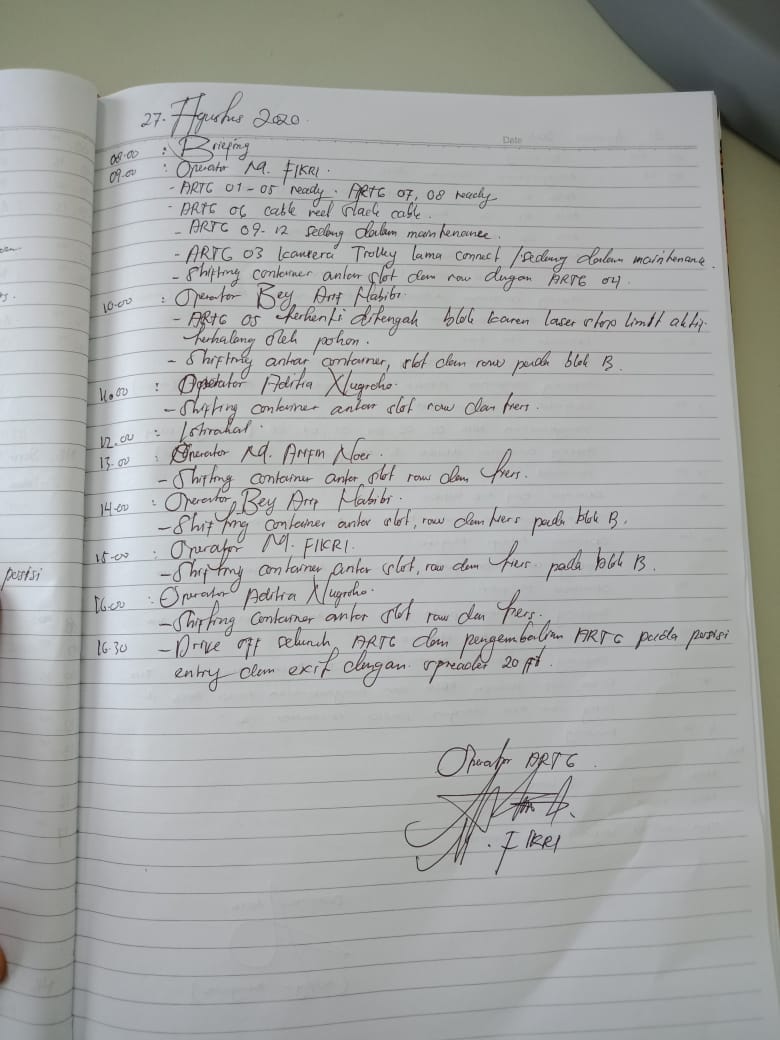 27. Agustus 2020.
Date
08.00 : Briefing
09.00 : Operator M. FIKRI.
- ARTG 01-05 ready. ARTG 07, 08 ready
- ARTG 06 cable reel slack cable.
- ARTG 09-12 sedang dalam maintenance.
- ARTG 03 kamera Trolley lama connect / sedang dalam maintenance.
- Shifting container antar slot dan row dengan ARTG 04.
10.00 : Operator Bey Arif Habibi
- ARTG 05 terhenti ditengah blok karen laser stop limit aktif.
terhalang oleh pohon.
- Shifting antar container, slot dan row pada blok B.
11.00 : Operator Aditia Nugroho.
- Shifting container antar slot row dan tiers.
12.00 : Istirahat.
13.00 : Operator M. Amin Noer.
- Shifting container antar slot row dan tiers.
14.00 : Operator Bey Arif Habibi.
- Shifting container antar slot, row dan tiers pada blok B.
15.00 : Operator M. FIKRI.
- Shifting container antar slot, row dan tiers pada blok B.
16.00 : Operator Aditia Nugroho.
- Shifting container antar slot row dan tiers.
16.30 - Drive off seluruh ARTG dan pengembalian ARTG pada posisi
entry dan exit dengan spreader 20 ft.
posisi
Operator ARTG.
M. FIKRI